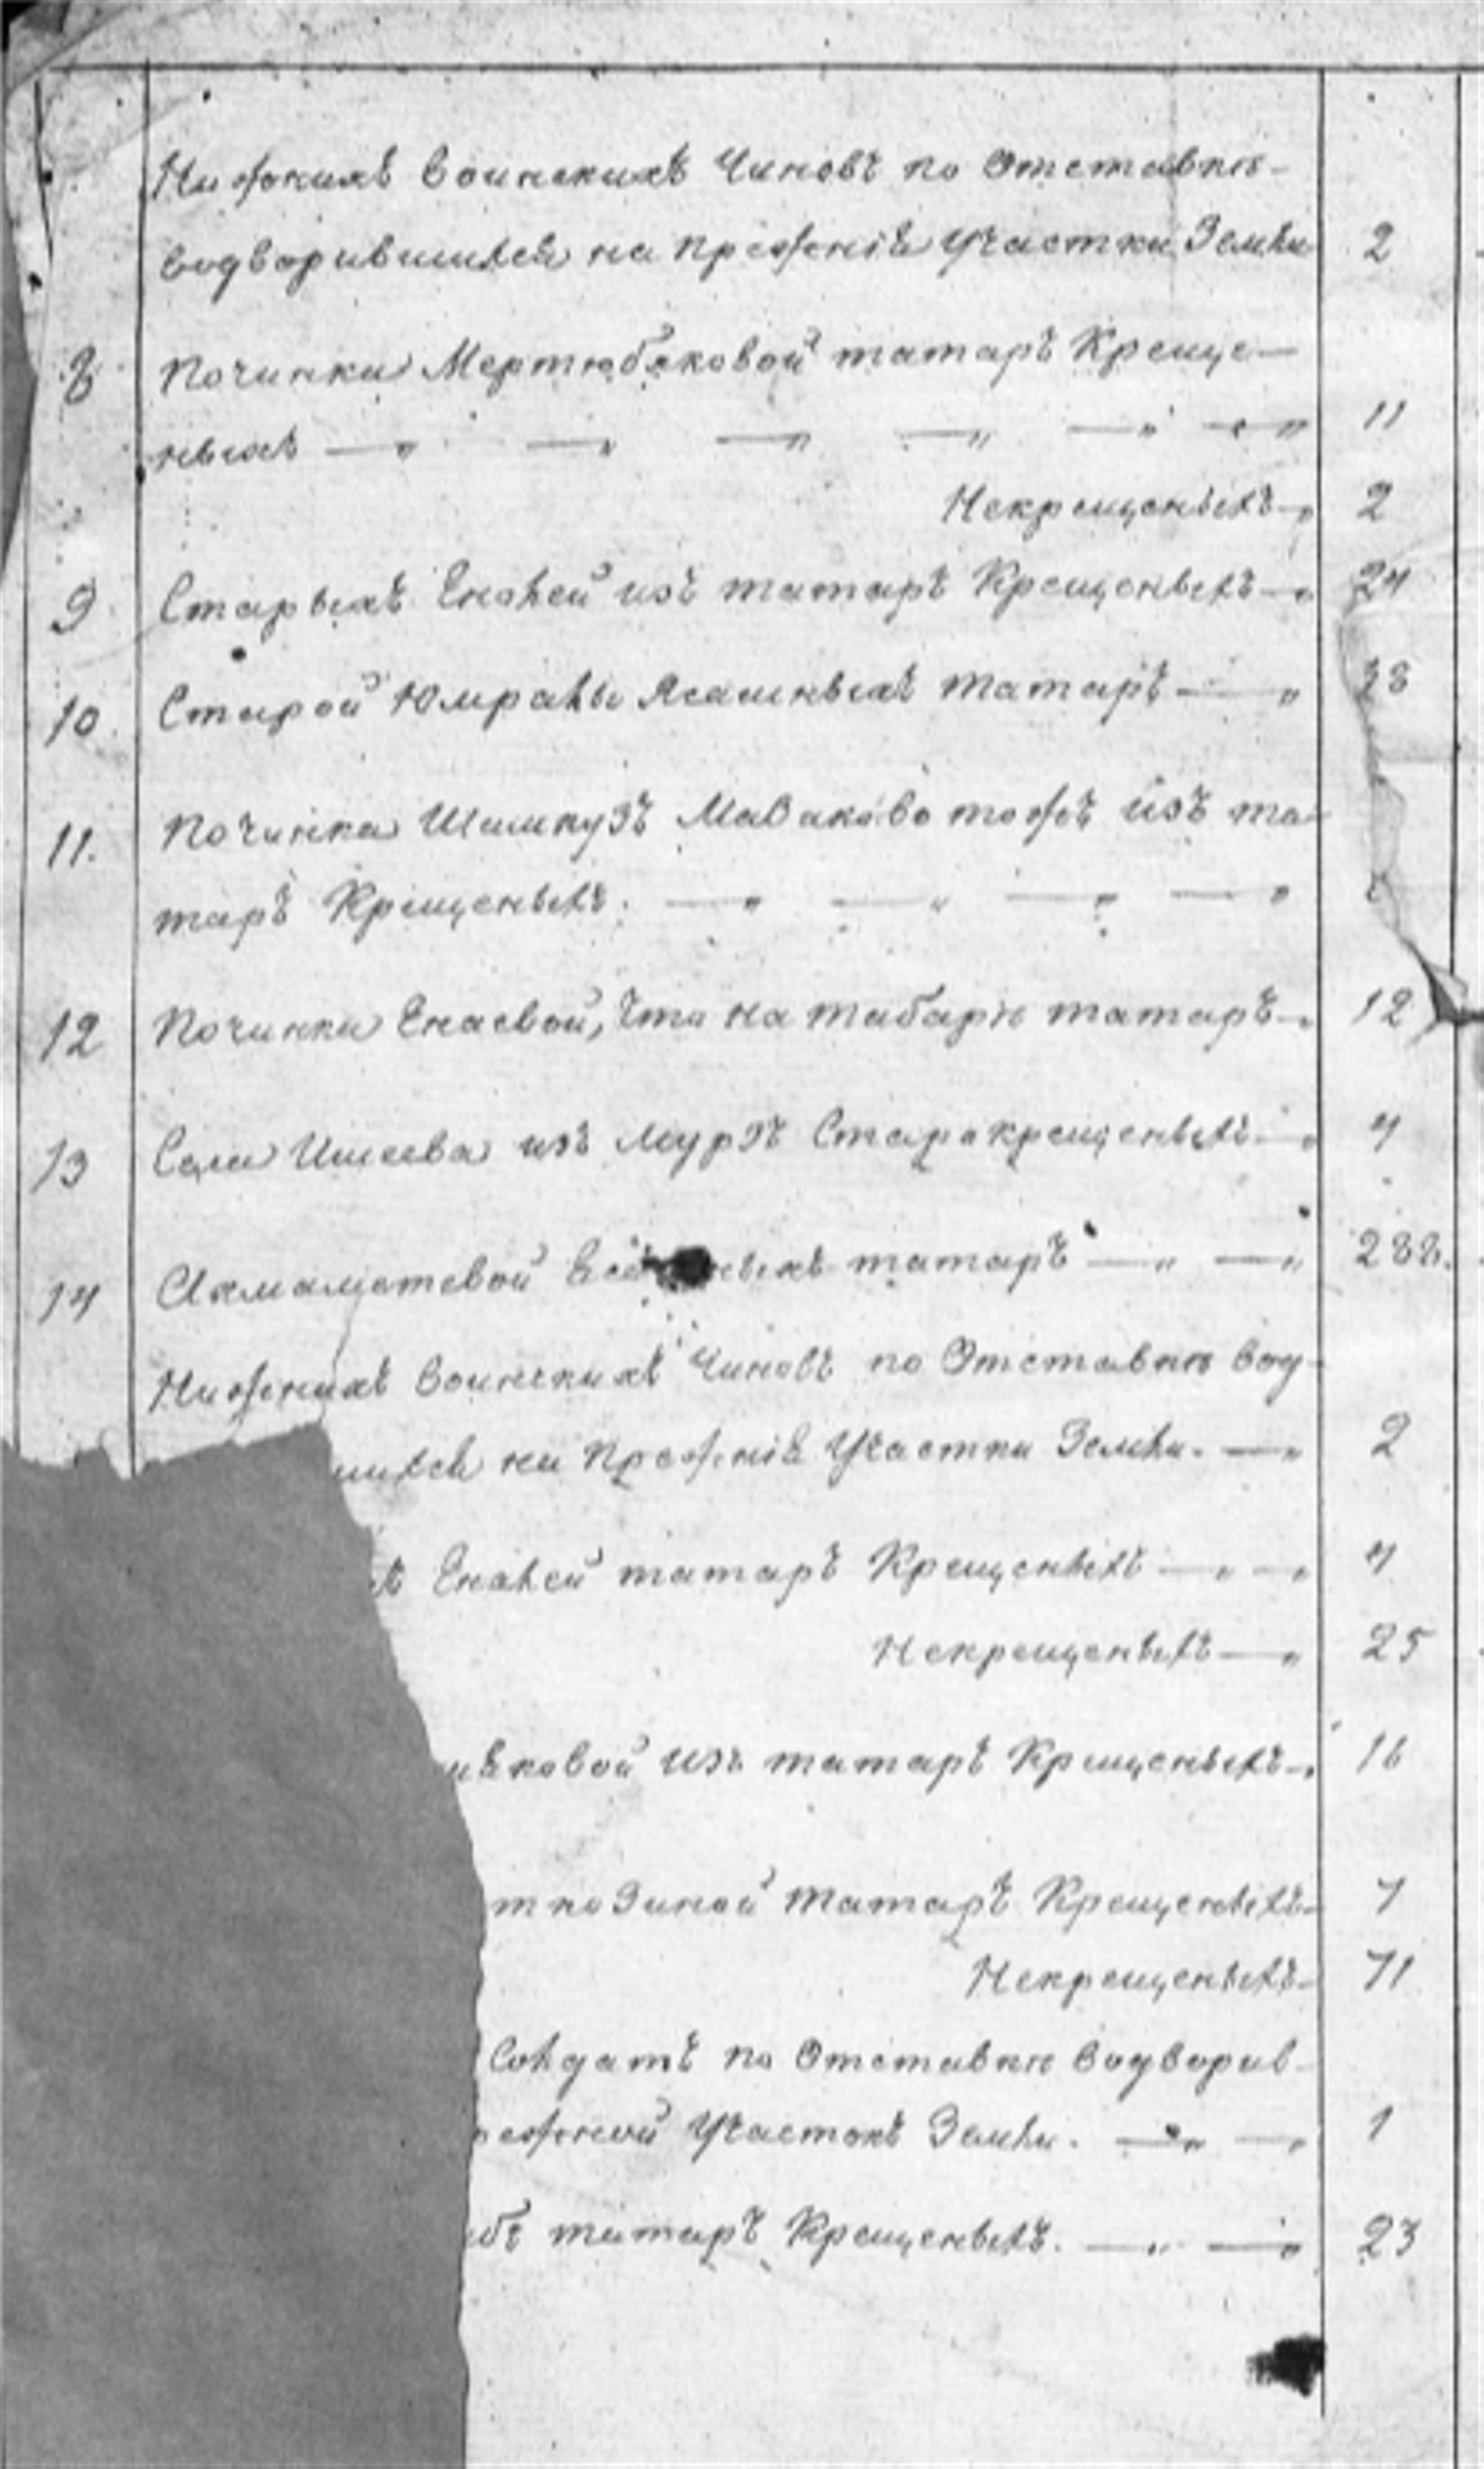 Нижнихъ воинскихъ Чиновъ по Отставкѣ
водворившихся на прежнiя Участки Земли 2
8 Починки Мертюбяковой татаръ Креще-
ныхъ — „ — „ — „ — „ — „ — „ 11
Некрещеныхъ — „ 2
9 Старыхъ Еналей изъ татаръ Крещеныхъ — „ 24
10. Старой Юмралы Ясашныхъ татаръ — „
11. Починка Шашкузъ Мавакова тожъ изъ та-
таръ Крещеныхъ. — „ — „ — „ — „
12 Починки Енаевой, Что на табарѣ татаръ — „ 12
13 Села Ишеева изъ Мурзъ Старокрещеныхъ — „ 4
14 Акмаметевой татаръ — „ — „ 288.
Нижнихъ Воинскихъ Чиновъ по Отставкѣ вод-
шихся на Прежнiя Участки Земли. — „ 2
хъ Еналей татаръ Крещеныхъ — „ — „ 4
Некрещеныхъ — „ 25
ковой изъ татаръ Крещеныхъ — „ 16
татаръ Крещеныхъ — 7
Некрещеныхъ — 71
Солдатъ по Отставкѣ водворив-
режней Участокъ Земли. — „ — „ 1
татаръ Крещеныхъ. — „ — „ 23